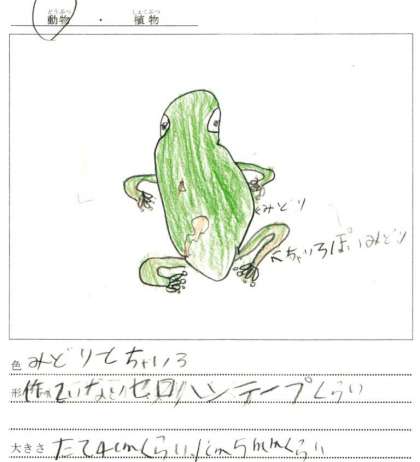 動物 ・ 植物
どうぶつ しょくぶつ
みどり
ちゃいろぽいみどり
色 みどりとちゃいろ
形 セロハンテープくらい
大きさ たて4cmくらい 1cm5mmくらい